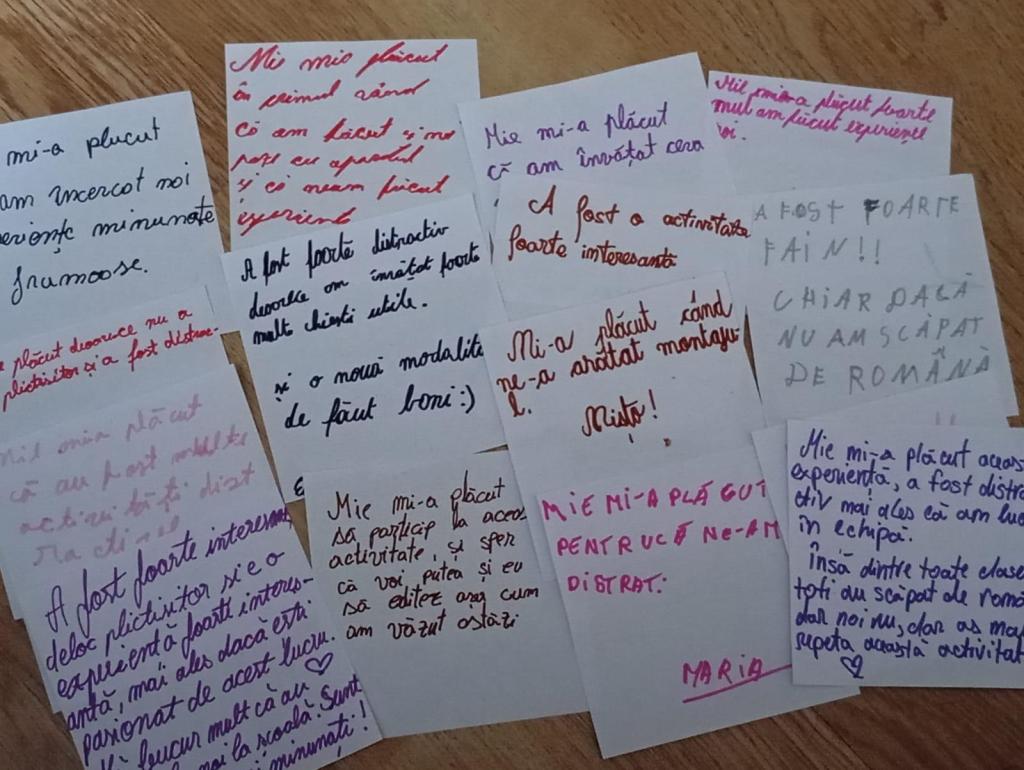 mi-a plucut
am încercot noi
minunate
frumoose.
Mie mio plăcut
în primul rând
că am făcut și no
poze cu aparatul
și că neam făcut
experiente
Mie mi-a plăcut
că am învățat ceva
Mie mia plăcut foarte
mul am făcut experiențe
noi.
A fost foarte distractiv
deoarece am învățat foarte
mult chestii utile.
și o nouă modalita
de făcut boni:)
A fost o activitate
foarte interesantă
A FOST FOARTE
FAIN!!
CHIAR DACĂ
NU AM SCĂPAT
DE ROMÂNĂ
plăcut deoarece nu a
plictisitor și a fost distrac-
Mi-a plăcut când
ne-a arătat montaju-
l.
Mișto!
mia plăcut
că au fost multe
activități dist
ractive
A fost foarte interesant,
deloc plictisitor si e o
experientă foarte interes-
antă, mai ales dacă esti
pasionat de acest lucru.
bucur mult că au
noi la scoală. Sunt
minunați!
Mie mi-a plăcut
să particip la aceas
activitate, și sper
că voi, putea și eu
să editez așa cum
am văzut astăzi
MIE MI-A PLĂCUT
PENTRUCĂ NE-AM
DISTRAT.
MARIA
Mie mi-a plăcut aceas
experientă, a fost distra
ctiv mai ales că am luc
în echipă.
Însă dintre toate clase
toti au scăpat de româ
dar noi nu, dar as mai
repeta această activitat